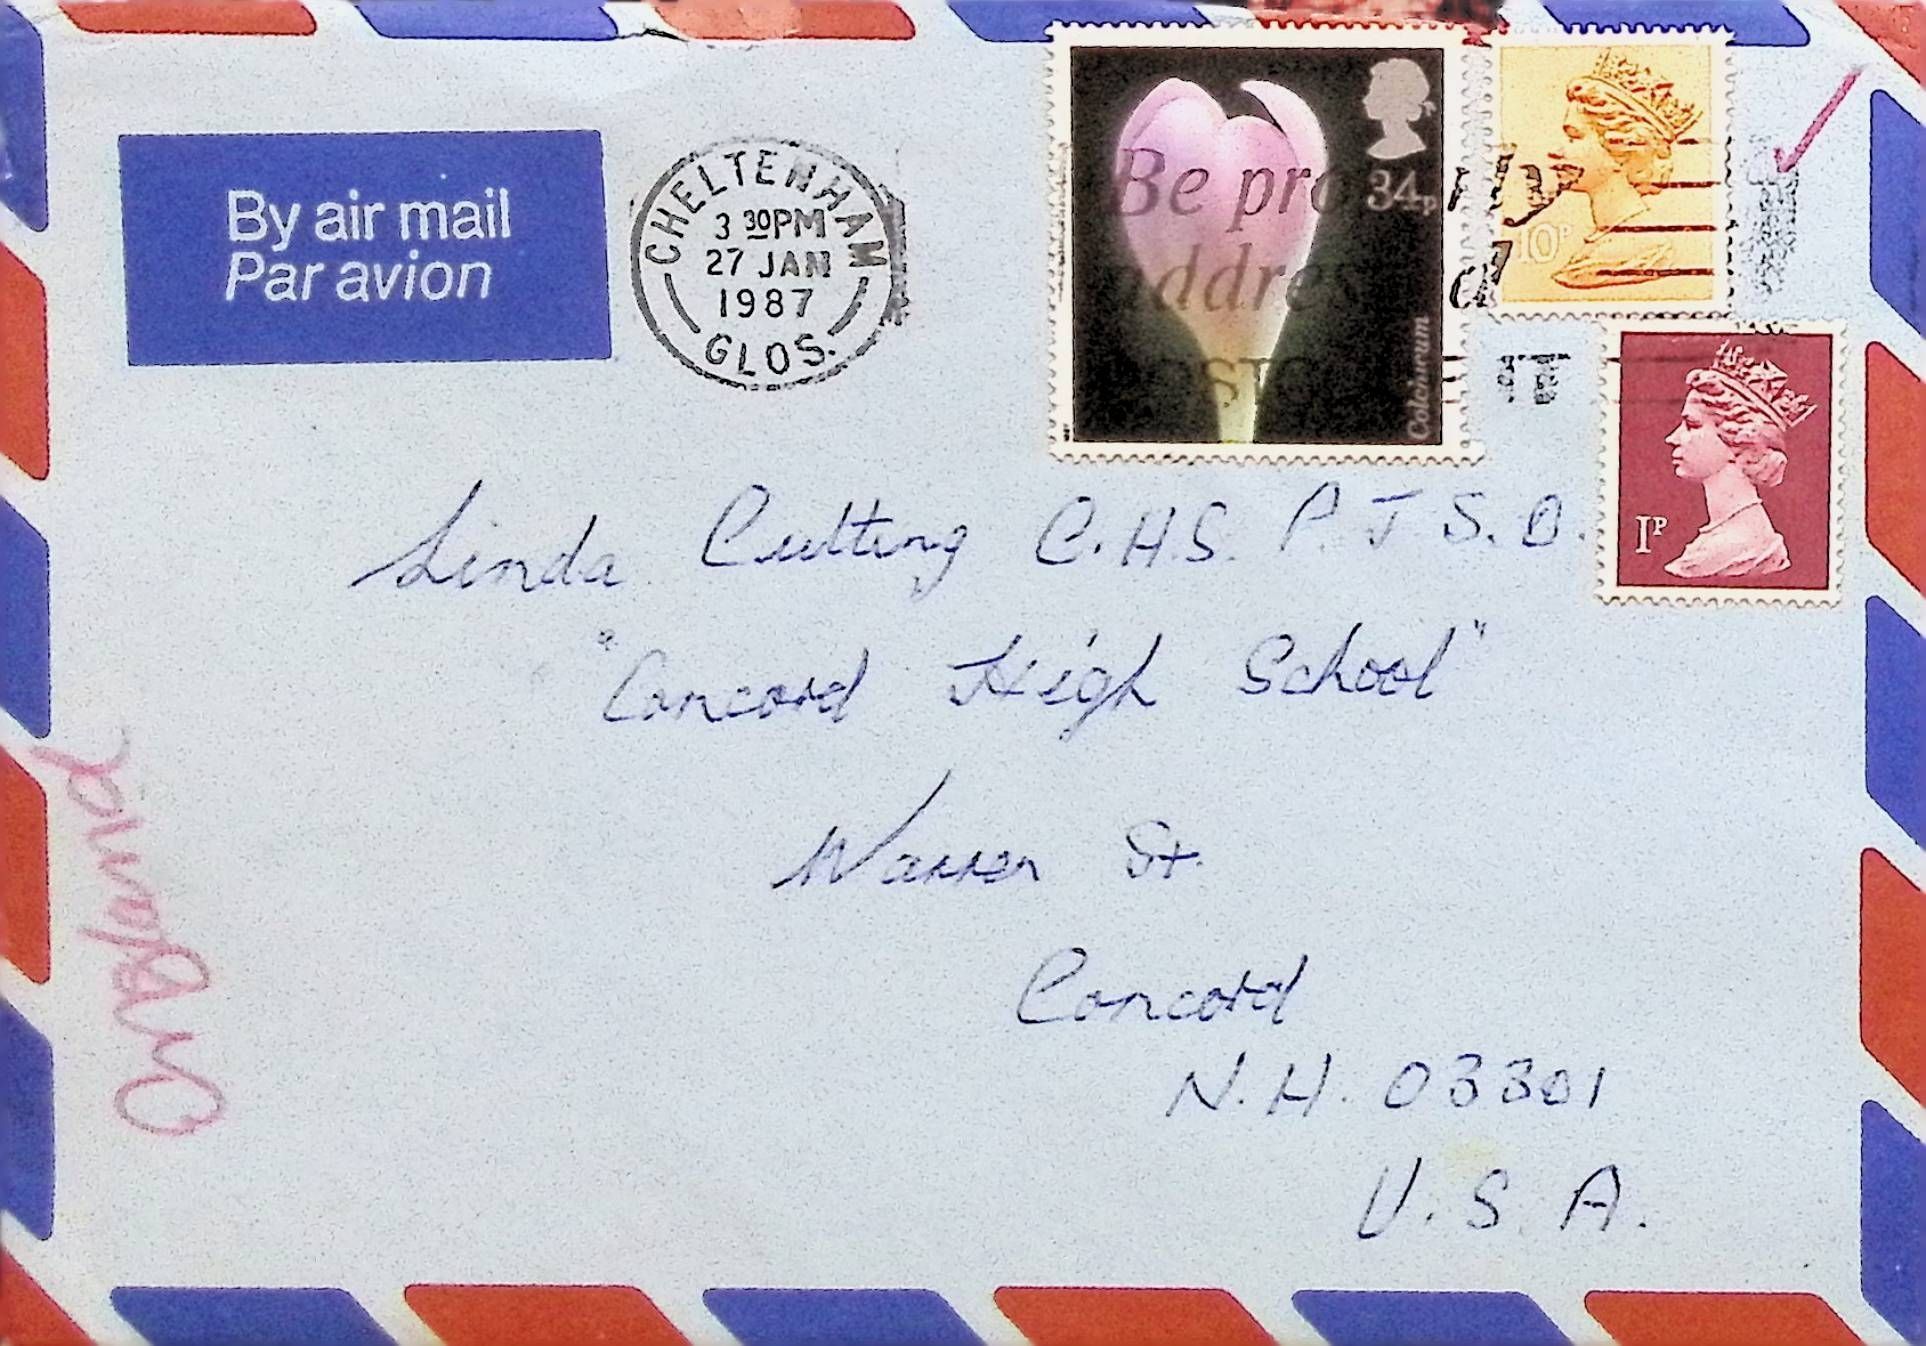 By air mail
Par avion
CHELTENHAM
3 30PM
27 JAN
1987
GLOS.
Be pro
addre
34p
Colchicum
10P
1P
Linda Cutting C.H.S. P.J.S.B.
"Concord High School"
Warren St.
Concord
N.H. 03301
U.S.A.